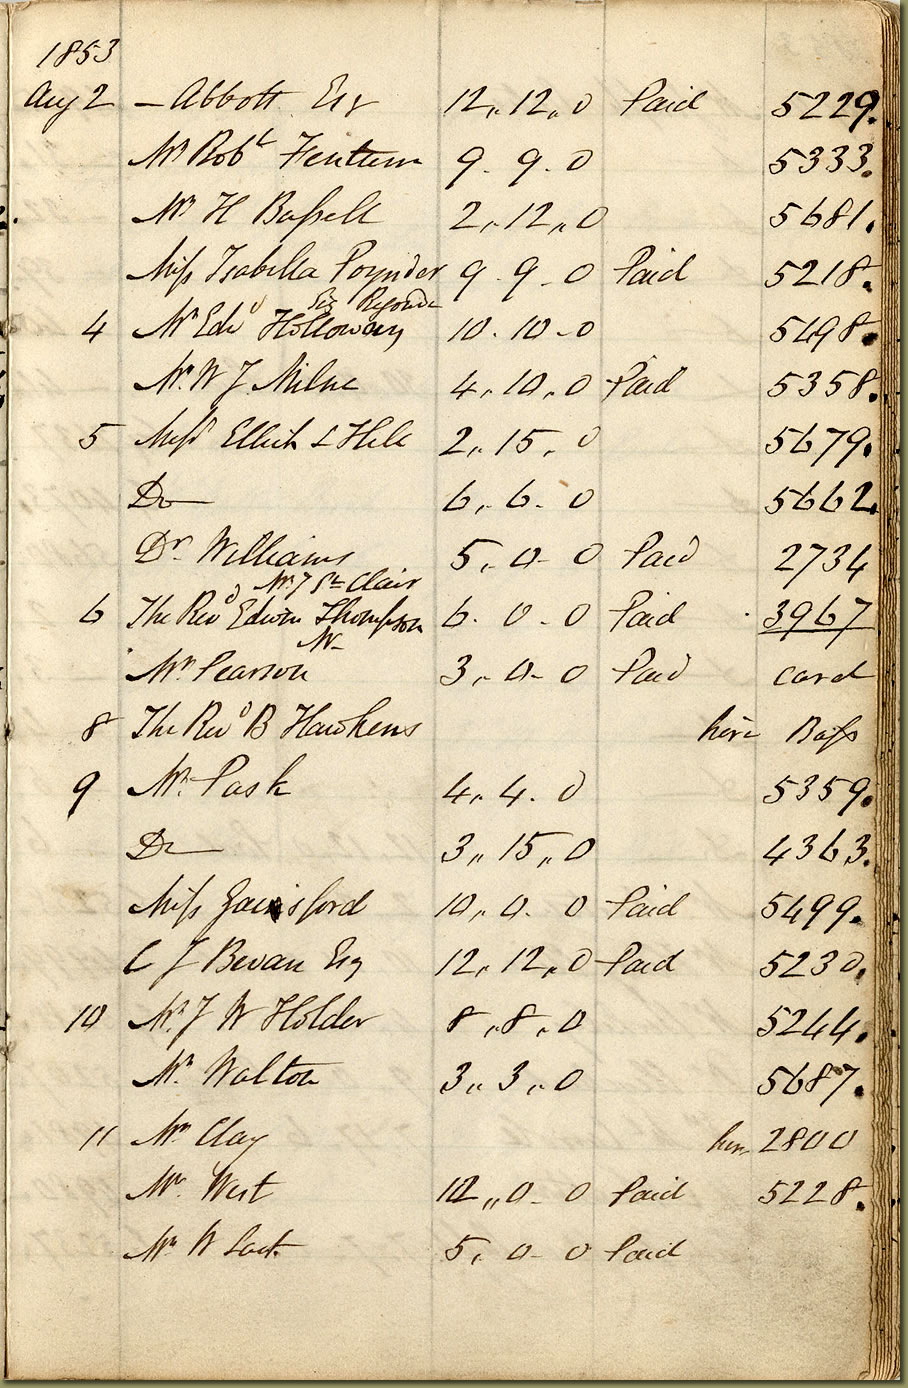 1853
Aug 2 – Abbott Esq 12,, 12,, 0 Paid 5229.
Mr Robt Fentum 9 - 9 - 0 5333.
Mr H Bassell 2,, 12,, 0 5681.
Miss Isabella Poynder 9 - 9 - 0 Paid 5218.
Sig Regondi
4 Mr Edd Holloway 10 - 10 - 0 5498.
Mr W J Milne 4,, 10,, 0 Paid 5358.
5 Messrs & Hill 2,, 15,, 0 5679.
Do 6,, 6 - 0 5662.
Dr Williams 5,, 0 - 0 Paid 2734
Mr J St Clair
6 The Revd Edwin Thompson 6 - 0 - 0 Paid 3967
Mr Pearson 3,, 0 - 0 Paid card
8 The Revd B Hawkens hire Bass
9 Mr Pask 4,, 4 - 0 5359.
Do 3,, 15,, 0 4363.
Miss Gainsford 10,, 0 - 0 Paid 5499.
C J Bevan Esq 12,, 12,, 0 Paid 5230.
10 Mr J W Holder 8,, 8,, 0 5244.
Mr Walton 3,, 3,, 0 5687.
11 Mr Clay hire 2800
Mr West 12,, 0 - 0 Paid 5228.
Mr W 5,, 0 - 0 Paid